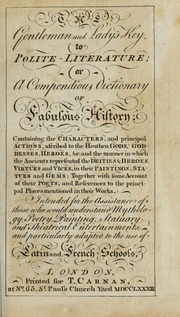 THE
Gentleman and Lady's Key,
to
POLITE LITERATURE;
or
A Compendious Dictionary
OF
Fabulous History:
Containing the CHARACTERS, and principal
ACTIONS, ascribed to the Heathen GODS, GOD-
DESSES, HEROES, &c. and the manner in which
the Ancients represented the DEITIES & HEROES,
VIRTUES and VICES, in their PAINTINGS, STA-
TUES and GEMS: Together with some Account
of their POETS, and References to the princi-
pal Places mentioned in their Works.
Intended for the Assistance of
those who would understand Mytholo-
gy, Poetry, Painting, Statuary,
and Theatrical Entertainments;
and particularly adapted to the use of
Latin and French Schools.
LONDON.
Printed for T. CARNAN,
at No. 65, St. Paul's Church Yard MDCCLXXXIII